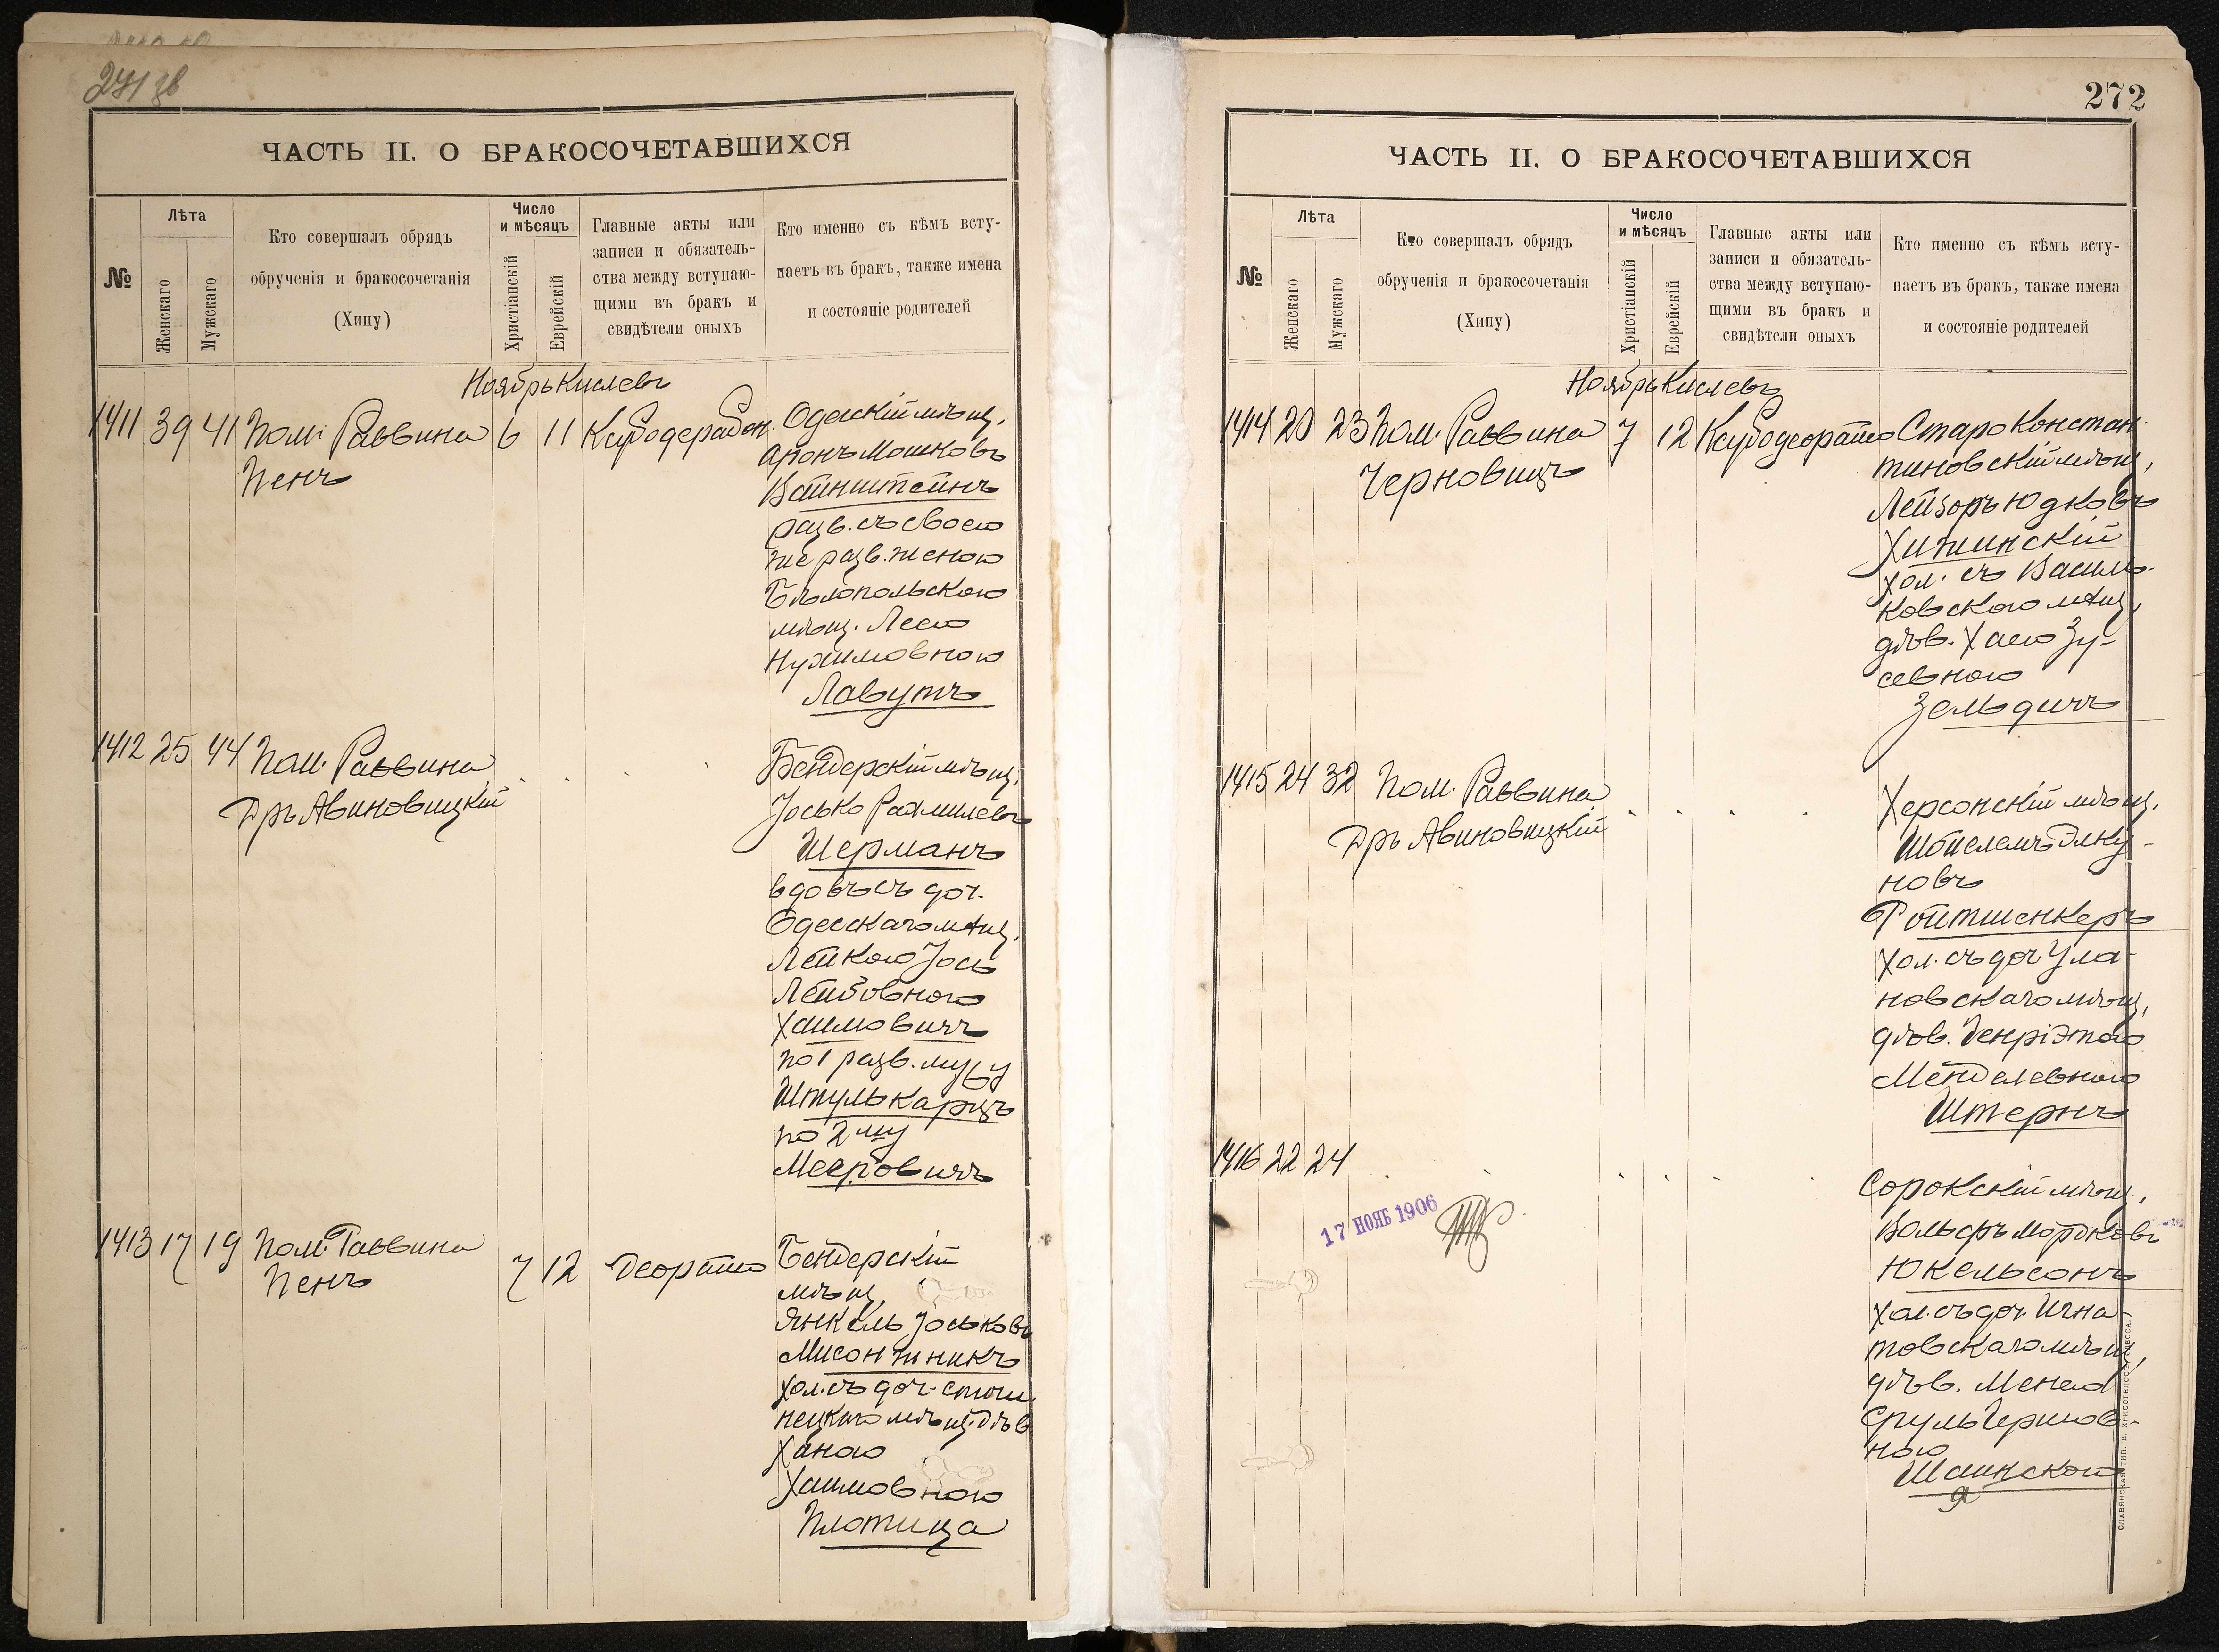 271 зв
ЧАСТЬ II. О БРАКОСОЧЕТАВШИХСЯ
№
Лѣта
Женскаго
Мужскаго
Кто совершалъ обрядъ
обрученія и бракосочетанія
(Хипу)
Число
и мѣсяцъ
Христіанскій
Еврейскій
Главные акты или
записи и обязатель-
ства между вступаю-
щими въ бракъ и
свидѣтели оныхъ
Кто именно съ кѣмъ всту-
паетъ въ бракъ, также имена
и состояніе родителей
Ноябрь Кислевъ
1411 39 41 Пом. Раввина 6 11
Пенъ
Одесскій мѣщ.
Аронъ Мошковъ
Вайнштейнъ
разв. съ своею
же разв. женою
Бѣлопольскою
мѣщ. Леею
Нухимовною
Лавутъ
1412 25 44 Пом. Раввина
Дръ Авиновицкій
Бендерскій мѣщ.
Іосько Рахмилевъ
Шерманъ
вдовъ съ доч.
Одесскаго мѣщ.
Лейкою Іось
Лейбовною
Хаимовичъ
по 1 разв. мужу
Штулькарцъ
по 2му
Мееровичъ
1413 17 19 Пом. Раввина 7 12
Пенъ
Бендерскій
мѣщ.
Янкель Іоськовъ
Мисонжникъ
хол. съ доч.
мѣщ. дѣв
Ханою
Хаимовною
Плотица
272
ЧАСТЬ II. О БРАКОСОЧЕТАВШИХСЯ
№
Лѣта
Женскаго
Мужскаго
Кто совершалъ обрядъ
обрученія и бракосочетанія
(Хипу)
Число
и мѣсяцъ
Христіанскій
Еврейскій
Главные акты или
записи и обязатель-
ства между вступаю-
щими въ бракъ и
свидѣтели оныхъ
Кто именно съ кѣмъ всту-
паетъ въ бракъ, также имена
и состояніе родителей
Ноябрь Кислевъ
1414 20 23 Пом. Раввина 7 12
Черновицъ
Староконстан-
тиновскій мѣщ.
Лейзоръ Юдковъ
Хижинскій
хол. съ Василь-
ковскою мѣщ.
дѣв. Хаею Зу-
севною
Зельдичъ
1415 24 32 Пом. Раввина
Дръ Авиновицкій
Херсонскій мѣщ.
новъ
Ройтшенкеръ
хол. съ доч. Ула-
новскаго мѣщ.
дѣв. Генріэтою
Менделевною
Штернъ
1416 22 24
Сорокскій мѣщ.
Вольфъ Мордковъ
Юкельсонъ
хол. съ доч. Игна-
товскаго мѣщ.
дѣв. Менею
Сруль Гершов-
ною
Шаинскою
я
17 НОЯБ 1906
СЛАВЯНСКАЯ ТИП. Е. ХРИСОГЕЛОСЪ ОДЕССА.